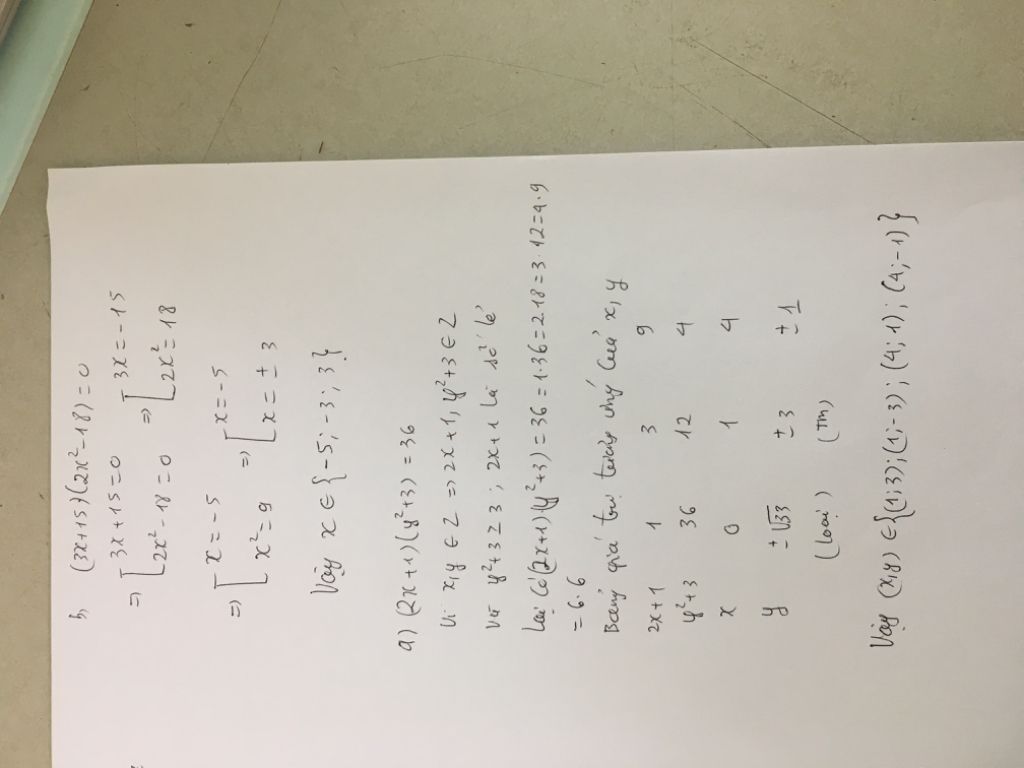 b, (3x+15)(2x²-18)=0
=> [3x+15=0 => [3x=-15
[2x²-18=0 [2x²=18
=> [x=-5 => [x=-5
[x²=9 [x=±3
Vậy x∈{-5;-3;3}
a) (2x+1)(y²+3)=36
Vì x,y∈Z => 2x+1, y²+3∈Z
và y²+3≥3; 2x+1 là số lẻ
Lại có (2x+1)(y²+3)=36=1.36=2.18=3.12=4.9
=6.6
Bảng giá trị tương ứng của x,y
2x+1 1 3 9
y²+3 36 12 4
x 0 1 4
y ±√33 ±3 ±1
(Loại) (TM)
Vậy (x,y)∈{(1;3);(1;-3);(4;1);(4;-1)}